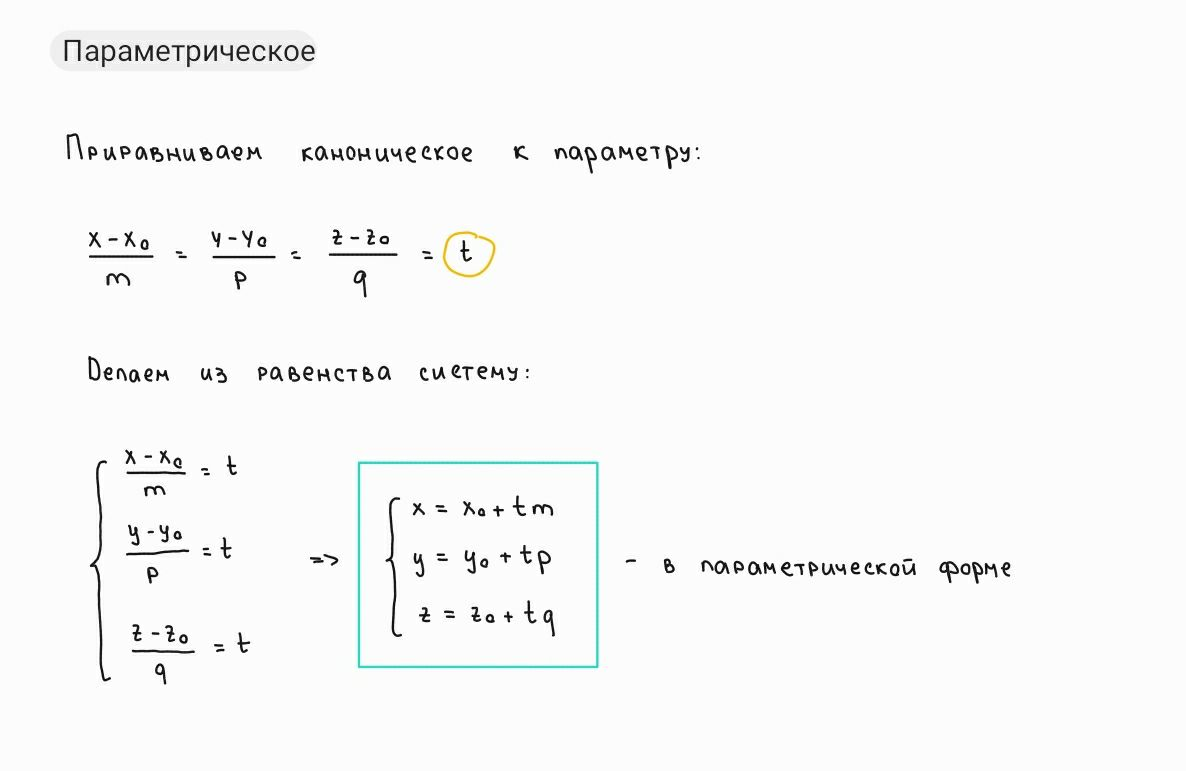 Параметрическое
Приравниваем каноническое к параметру:
(x - x₀)/m = (y - y₀)/p = (z - z₀)/q = t
Делаем из равенства систему:
{ (x - x₀)/m = t
(y - y₀)/p = t
(z - z₀)/q = t
=>
{ x = x₀ + tm
y = y₀ + tp
z = z₀ + tq
- в параметрической форме